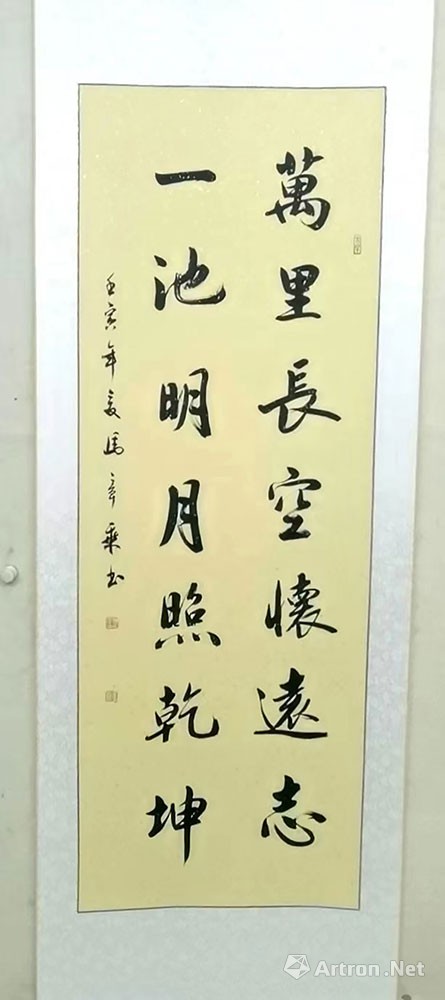 萬里長空懷遠志
一池明月照乾坤
壬寅年夏馮章乘书
Artron.Net